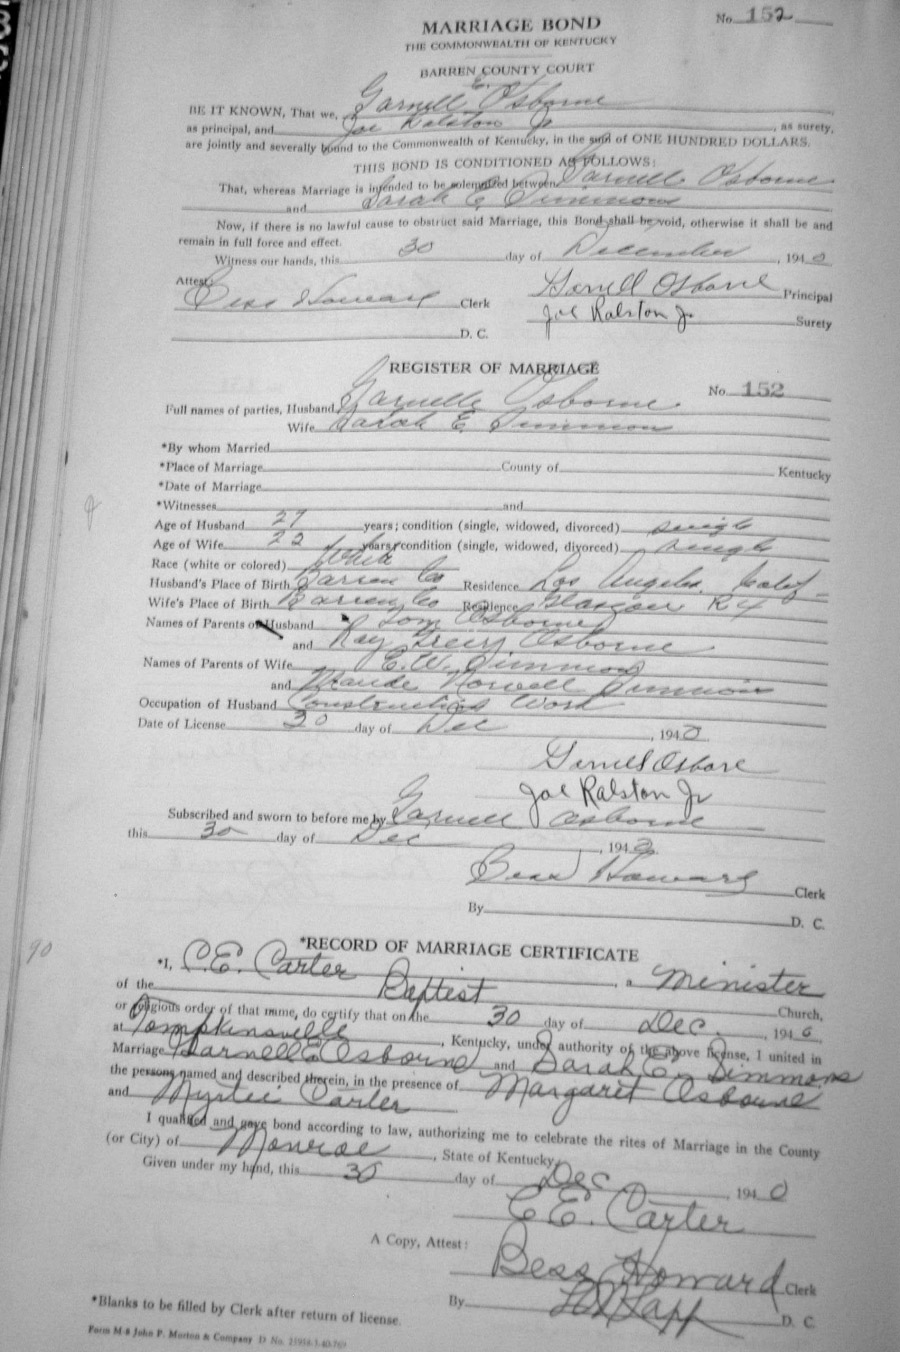 No. 152
MARRIAGE BOND
THE COMMONWEALTH OF KENTUCKY
BARREN COUNTY COURT
BE IT KNOWN, That we, Garnell E. Osborne
as principal, and Joe Ralston Jr, as surety,
are jointly and severally bound to the Commonwealth of Kentucky, in the sum of ONE HUNDRED DOLLARS.
THIS BOND IS CONDITIONED AS FOLLOWS:
That, whereas Marriage is intended to be solemnized between Garnell Osborne
and Sarah E. Simmons
Now, if there is no lawful cause to obstruct said Marriage, this Bond shall be void, otherwise it shall be and
remain in full force and effect.
Witness our hands, this 30 day of December, 1940
Attest:
Bess Howard Clerk Garnell Osborne Principal
D. C. Joe Ralston Jr. Surety
REGISTER OF MARRIAGE
No. 152
Full names of parties, Husband Garnelle Osborne
Wife Sarah E. Simmons
*By whom Married
*Place of Marriage County of Kentucky
*Date of Marriage
*Witnesses and
Age of Husband 27 years; condition (single, widowed, divorced) single
Age of Wife 22 years; condition (single, widowed, divorced) single
Race (white or colored) White
Husband's Place of Birth Barren Co Residence Los Angeles, Calif
Wife's Place of Birth Barren Co Residence Glasgow R4
Names of Parents of Husband Tom Osborne
and Ray Osborne
Names of Parents of Wife E. W. Simmons
and Maude Nowell Simmons
Occupation of Husband Construction Work
Date of License 30 day of Dec, 1940
Garnell Osborne
Joe Ralston Jr
Subscribed and sworn to before me by Garnell Osborne
this 30 day of Dec, 1940
Bess Howard Clerk
By D. C.
90
*RECORD OF MARRIAGE CERTIFICATE
*I, C. E. Carter, a Minister
of the Baptist Church,
or religious order of that name, do certify that on the 30 day of Dec., 1940
at Tompkinsville, Kentucky, under authority of the above license, I united in
Marriage Garnell E Osbourne and Sarah E. Simmons
the persons named and described therein, in the presence of Margaret Osbourne
and Myrtie Carter
I qualified and gave bond according to law, authorizing me to celebrate the rites of Marriage in the County
(or City) of Monroe, State of Kentucky.
Given under my hand, this 30 day of Dec, 1940
C. E. Carter
A Copy, Attest:
Bess Howard Clerk
By D. C.
*Blanks to be filled by Clerk after return of license.
Form M-8 John P. Morton & Company